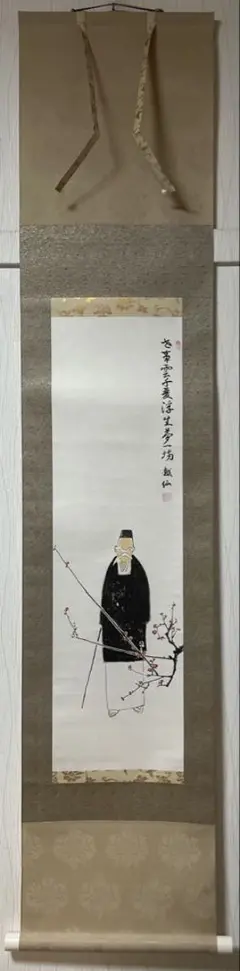 世事雲千変浮生夢一場 越仙